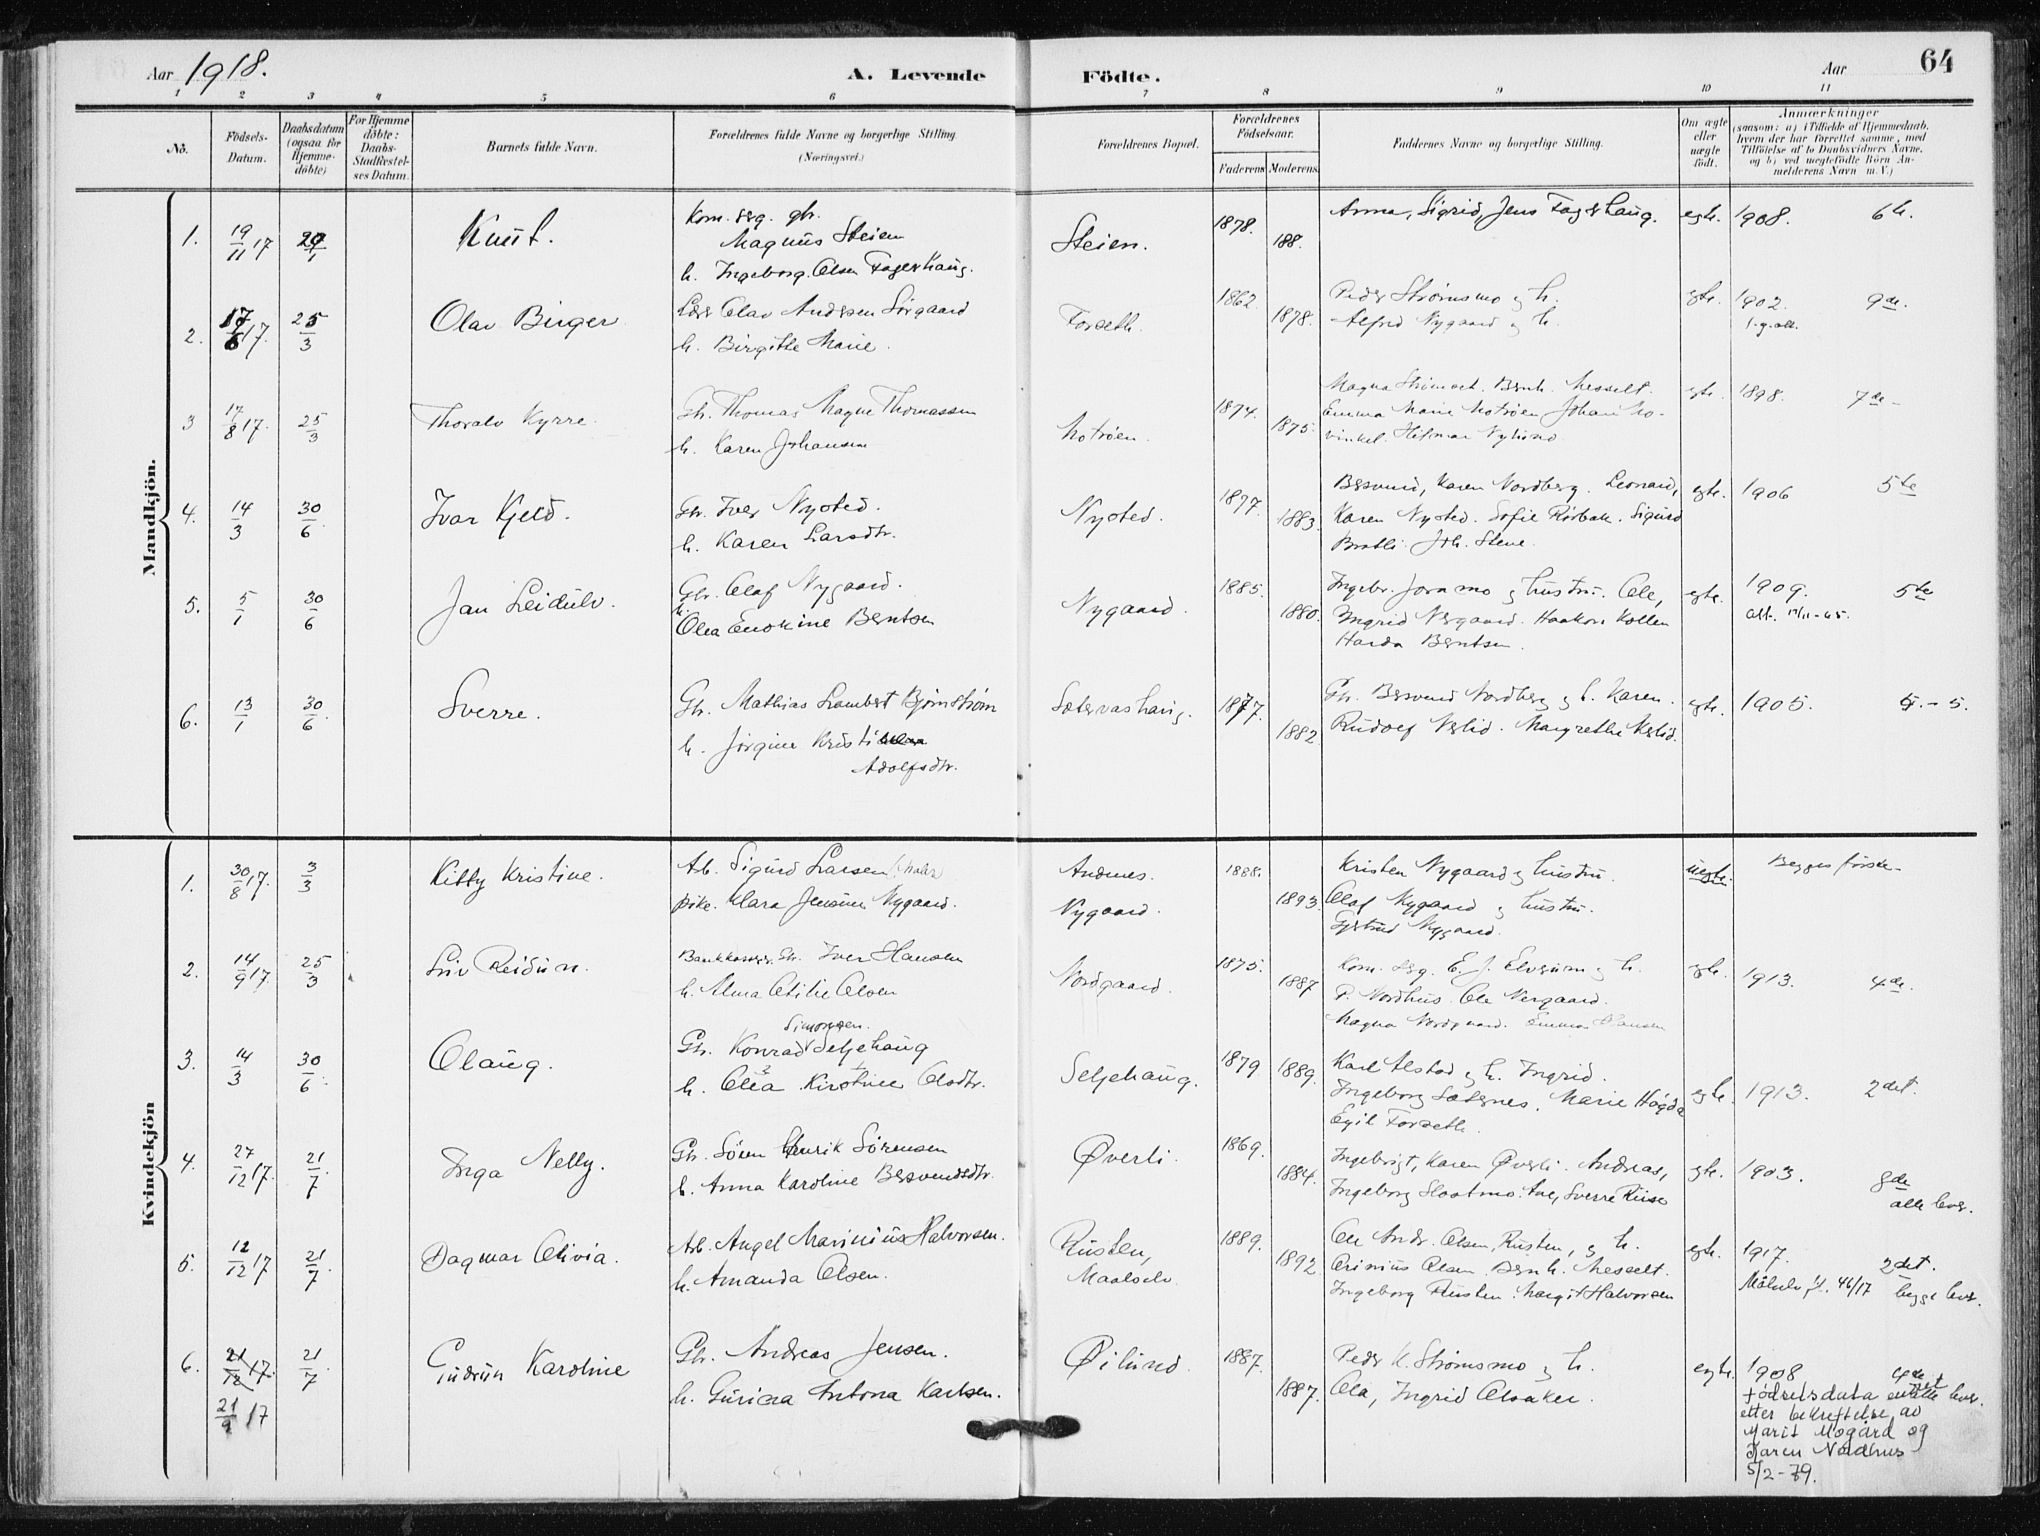 Aar 1918.
A. Levende Födte.
Aar
64
1 2 3 4 5 6 7 8 9 10 11
No.
Födsels-Datum.
Daabsdatum (ogsaa for Hjemme-döbte)
For Hjemme döbte: Daabs-Stadfæstel-ses Datum.
Barnets fulde Navn.
Forældrenes fulde Navne og borgerlige Stilling. (Næringsvei.)
Forældrenes Bopæl.
Forældrenes Födselsaar.
Faderens Moderens
Faddernes Navne og borgerlige Stilling.
Om ægte eller uægte født.
Anmærkninger
(saasom: a) i Tilfælde af Hjemmedaab, hvem der har forrettet samme, med Tilföielse af to Daabsvidners Navne, og b) ved uegtefödte Börn An-melderens Navn m. V.)
Mandkjön.
1. 19/11 17 Knut. Kom. erg. gbr. Magnus Steien
h. Ingeborg Olsen Fagerhaug. Steien. 1878. 188. Anna, Sigrid, Jens Fagerhaug. egte. 1908. 6te.
2. 17/6 17. 25/3 Olav Birger Lærer Olav Andersen Sørgaard
h. Birgitte Marie. Forseth. 1862 1878. Peder Strømsmo og h.
Alfred Nygaard og h. egte. 1902. 9de.
3 17/8 17. 25/3 Thoralv Kyrre. Gbr. Thomas Magne Thomassen
h. Karen Johansen Motrøen. 1874. 1875. Bernh. Messelt.
Emma Marie Motrøen Johan Mo-
vinkel. Hilmar Nylund egte. 1898. 7de
4. 14/3 30/6 Ivar Kjeld. Gbr. Iver Nysted.
h. Karen Larsdtr. Nysted. 1877. 1883. Bersvend, Karen Nordberg. Leonard,
Karen Nysted. Sofie Rørbak. Sigurd
Bratli. Joh. Stene. egte. 1906 5te
5. 5/1 30/6 Jan Leidulv. Gbr. Olaf Nygaard.
h. Olea Enokine Berntsen Nygaard. 1885. 1880. Ingebr. Joramo og hustru. Ole,
Ingrid Nergaard. Haakon Kollen
Harda Berntsen. egte. 1909. 5te
6. 13/1 30/6 Sverre. Gbr. Mathias Lambert Bjørnstrøm
h. Jørgine Kristi
Adolfsdtr. Sætervashaug. 1877. 1882. Gbr. Bersvend Nordberg og h. Karen.
Rudolf Nerlid. Margrethe Nerlid. egte. 1905. 5.
Kvindekjön
1. 30/8 17. 3/3 Kitty Kristine. Arb. Sigurd Larsen
pike. Klara Jensine Nygaard. Andnes.
Nygaard. 1888. 1893. Kristen Nygaard og hustru.
Olaf Nygaard og hustru.
Gjertrud Nygaard. uegte. Begges første
2. 14/9 17. 25/3 Liv Reidun. Bankkasserer Iver Hansen
h. Alma Otilie Olsen Nordgaard. 1875. 1887 Kom. erg. E. J. Elverum og h.
P. Nordhus. Ole Nergaard.
Magna Nordgaard. Emma Hansen egte. 1913. 4de.
3. 14/3 30/6 Olaug. Gbr. Konrad Simonsen. Seljehaug
h. Olea Kirstine Olsdtr. Seljehaug. 1879 1889. Karl Alstad og h. Ingrid.
Ingeborg Sæternes. Marie Høgda
Egil Forseth. egte. 1913. 2det.
4. 27/12 17. 21/7 Inga Nelly. Gbr. Søren Henrik Sørensen
h. Anna Karoline Bersvendsdtr. Øverli. 1869. 1884. Ingebrigt, Karen Øverli. Andreas,
Ingeborg Slaatmo. Sverre Riise egte. 1903. 8de
alle lever.
5. 12/12 17 21/7 Dagmar Olivia. Arb. Angel Marinius Halvorsen.
h. Amanda Olsen. Rusten,
Maalselv. 1889. 1892. Ole Andr. Olsen, Rusten, og h.
Arinius Olsen. Bernh. Messelt.
Ingeborg Rusten. Margit Halvorsen egte. 1917.
Målselv fl. 46/17 2det.
begge lever.
6. 21/12 17. 21/9 17 21/7 Gudrun Karoline Gbr. Andreas Jensen.
h. Guriana Antona Karlsen. Øilund. 1887. 1887. Peder K. Strømsmo og h.
Ola, Ingrid Olsaker. egte. 1908 4de
fødselsdata endret
etter bekreftelse av
Marit Mogård og
Karen Nordhus
5/2-79.